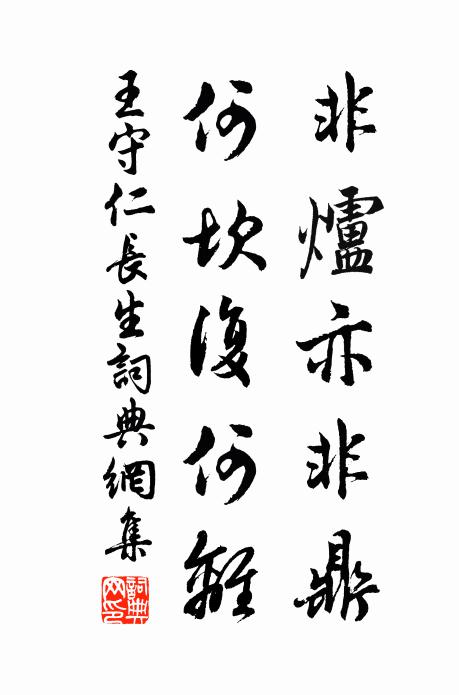 非爐亦非鼎
何坎復何離
王守仁長生詞典網集
詞典網印